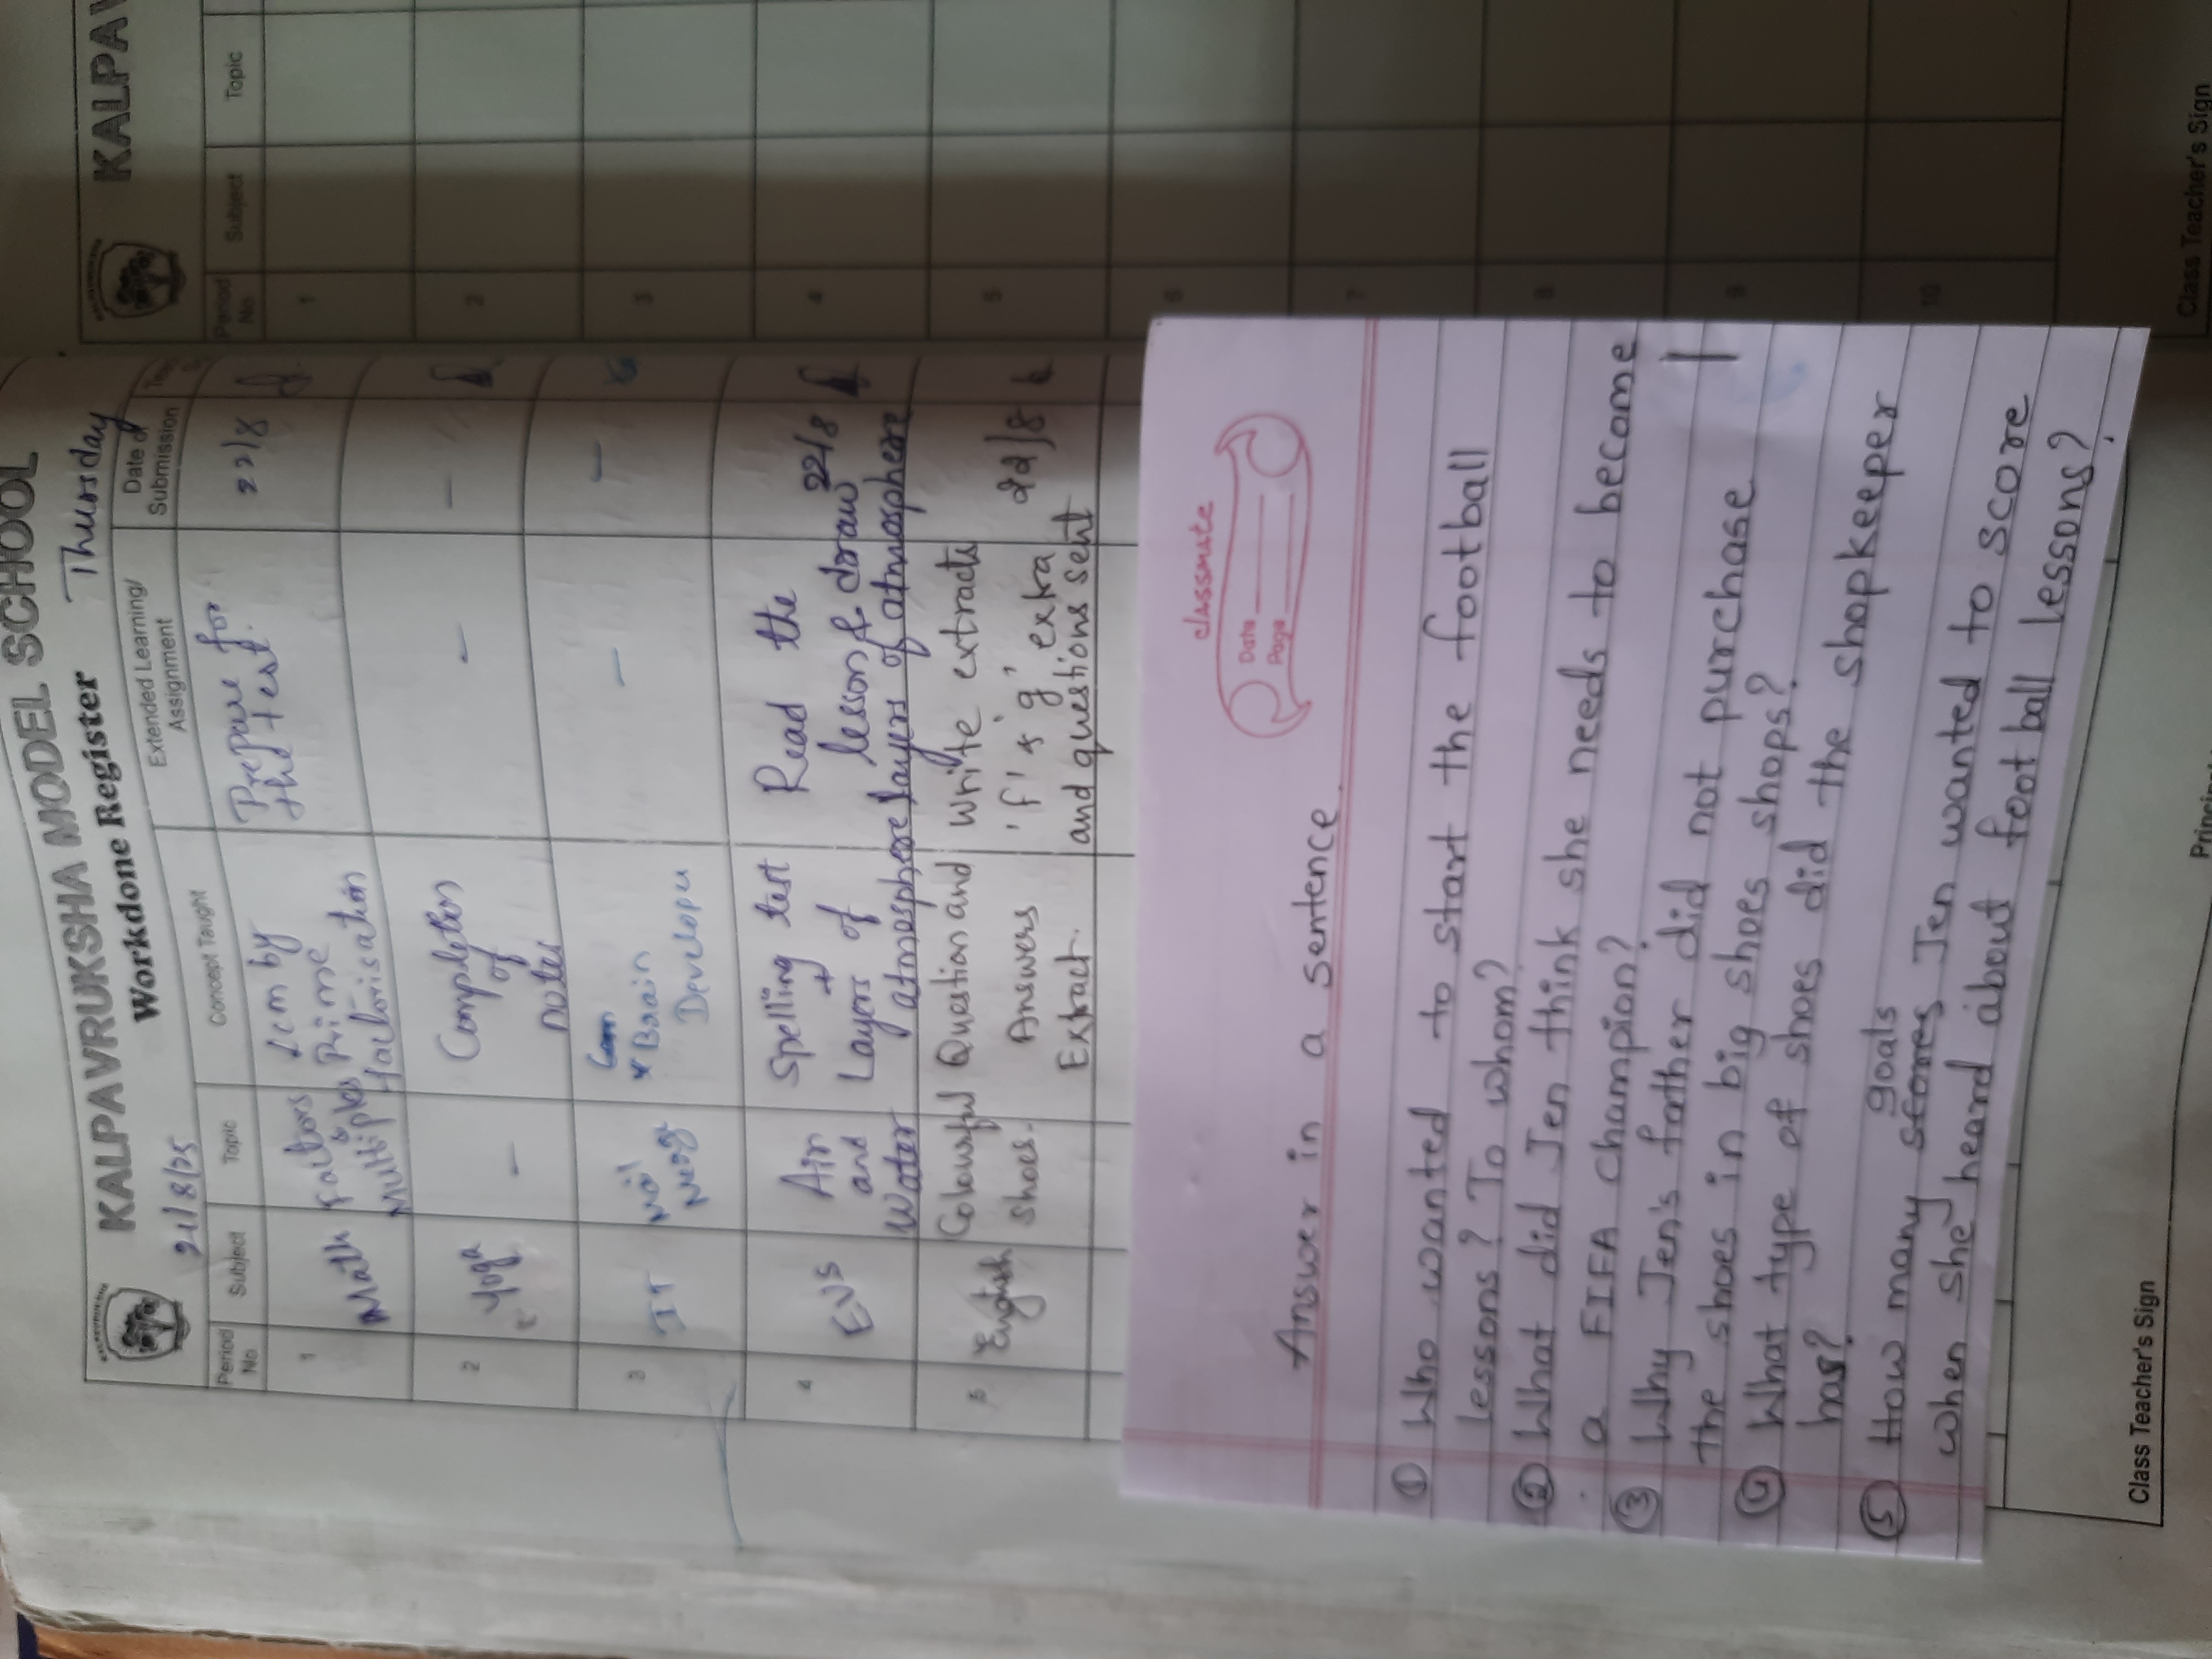 KALPAVRUKSHA MODEL SCHOOL
Workdone Register
21/8/25
Thursday
Period No
Subject
Topic
Concept Taught
Extended Learning/ Assignment
Date of Submission
1
Math
Factors & Multiples
Lcm by Prime factorisation
Prepare for the test.
22/8
2
Yoga
-
Completion of notes
-
-
3
IT
Brain
-
-
4
EVS
Air and Water
Spelling test + Layers of atmosphere
Read the lesson & draw layers of atmosphere
22/8
5
English
Colourful shoes.
Question and Answers Extract.
Write extracts 'f' & 'g' extra and questions sent
22/8
classmate
Date
Page
Answer in a sentence.
① Who wanted to start the football
lessons? To whom?
② What did Jen think she needs to become
a FIFA champion?
③ Why Jen's father did not purchase
the shoes in big shoes shops?
④ What type of shoes did the shopkeeper
has?
goals
⑤ How many stores Jen wanted to score
when she heard about football lessons?
Class Teacher's Sign
KALPAV
Period No
Subject
Topic
1
2
3
4
5
6
7
8
9
10
Class Teacher's Sign